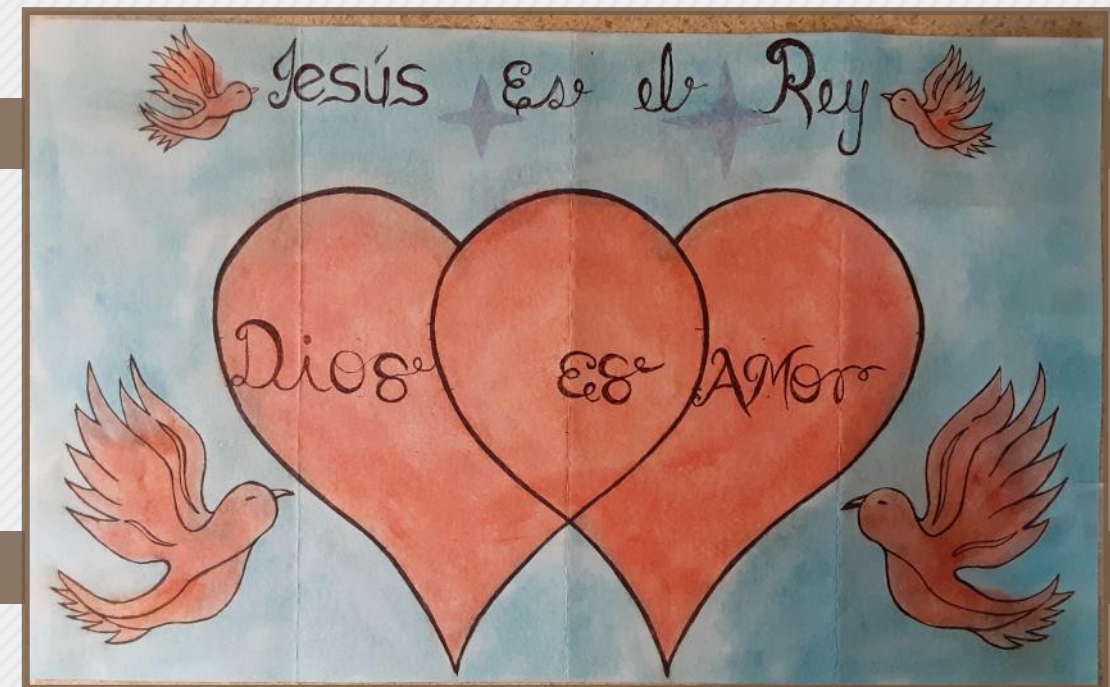 Jesús Es el Rey
Dios Es AMor